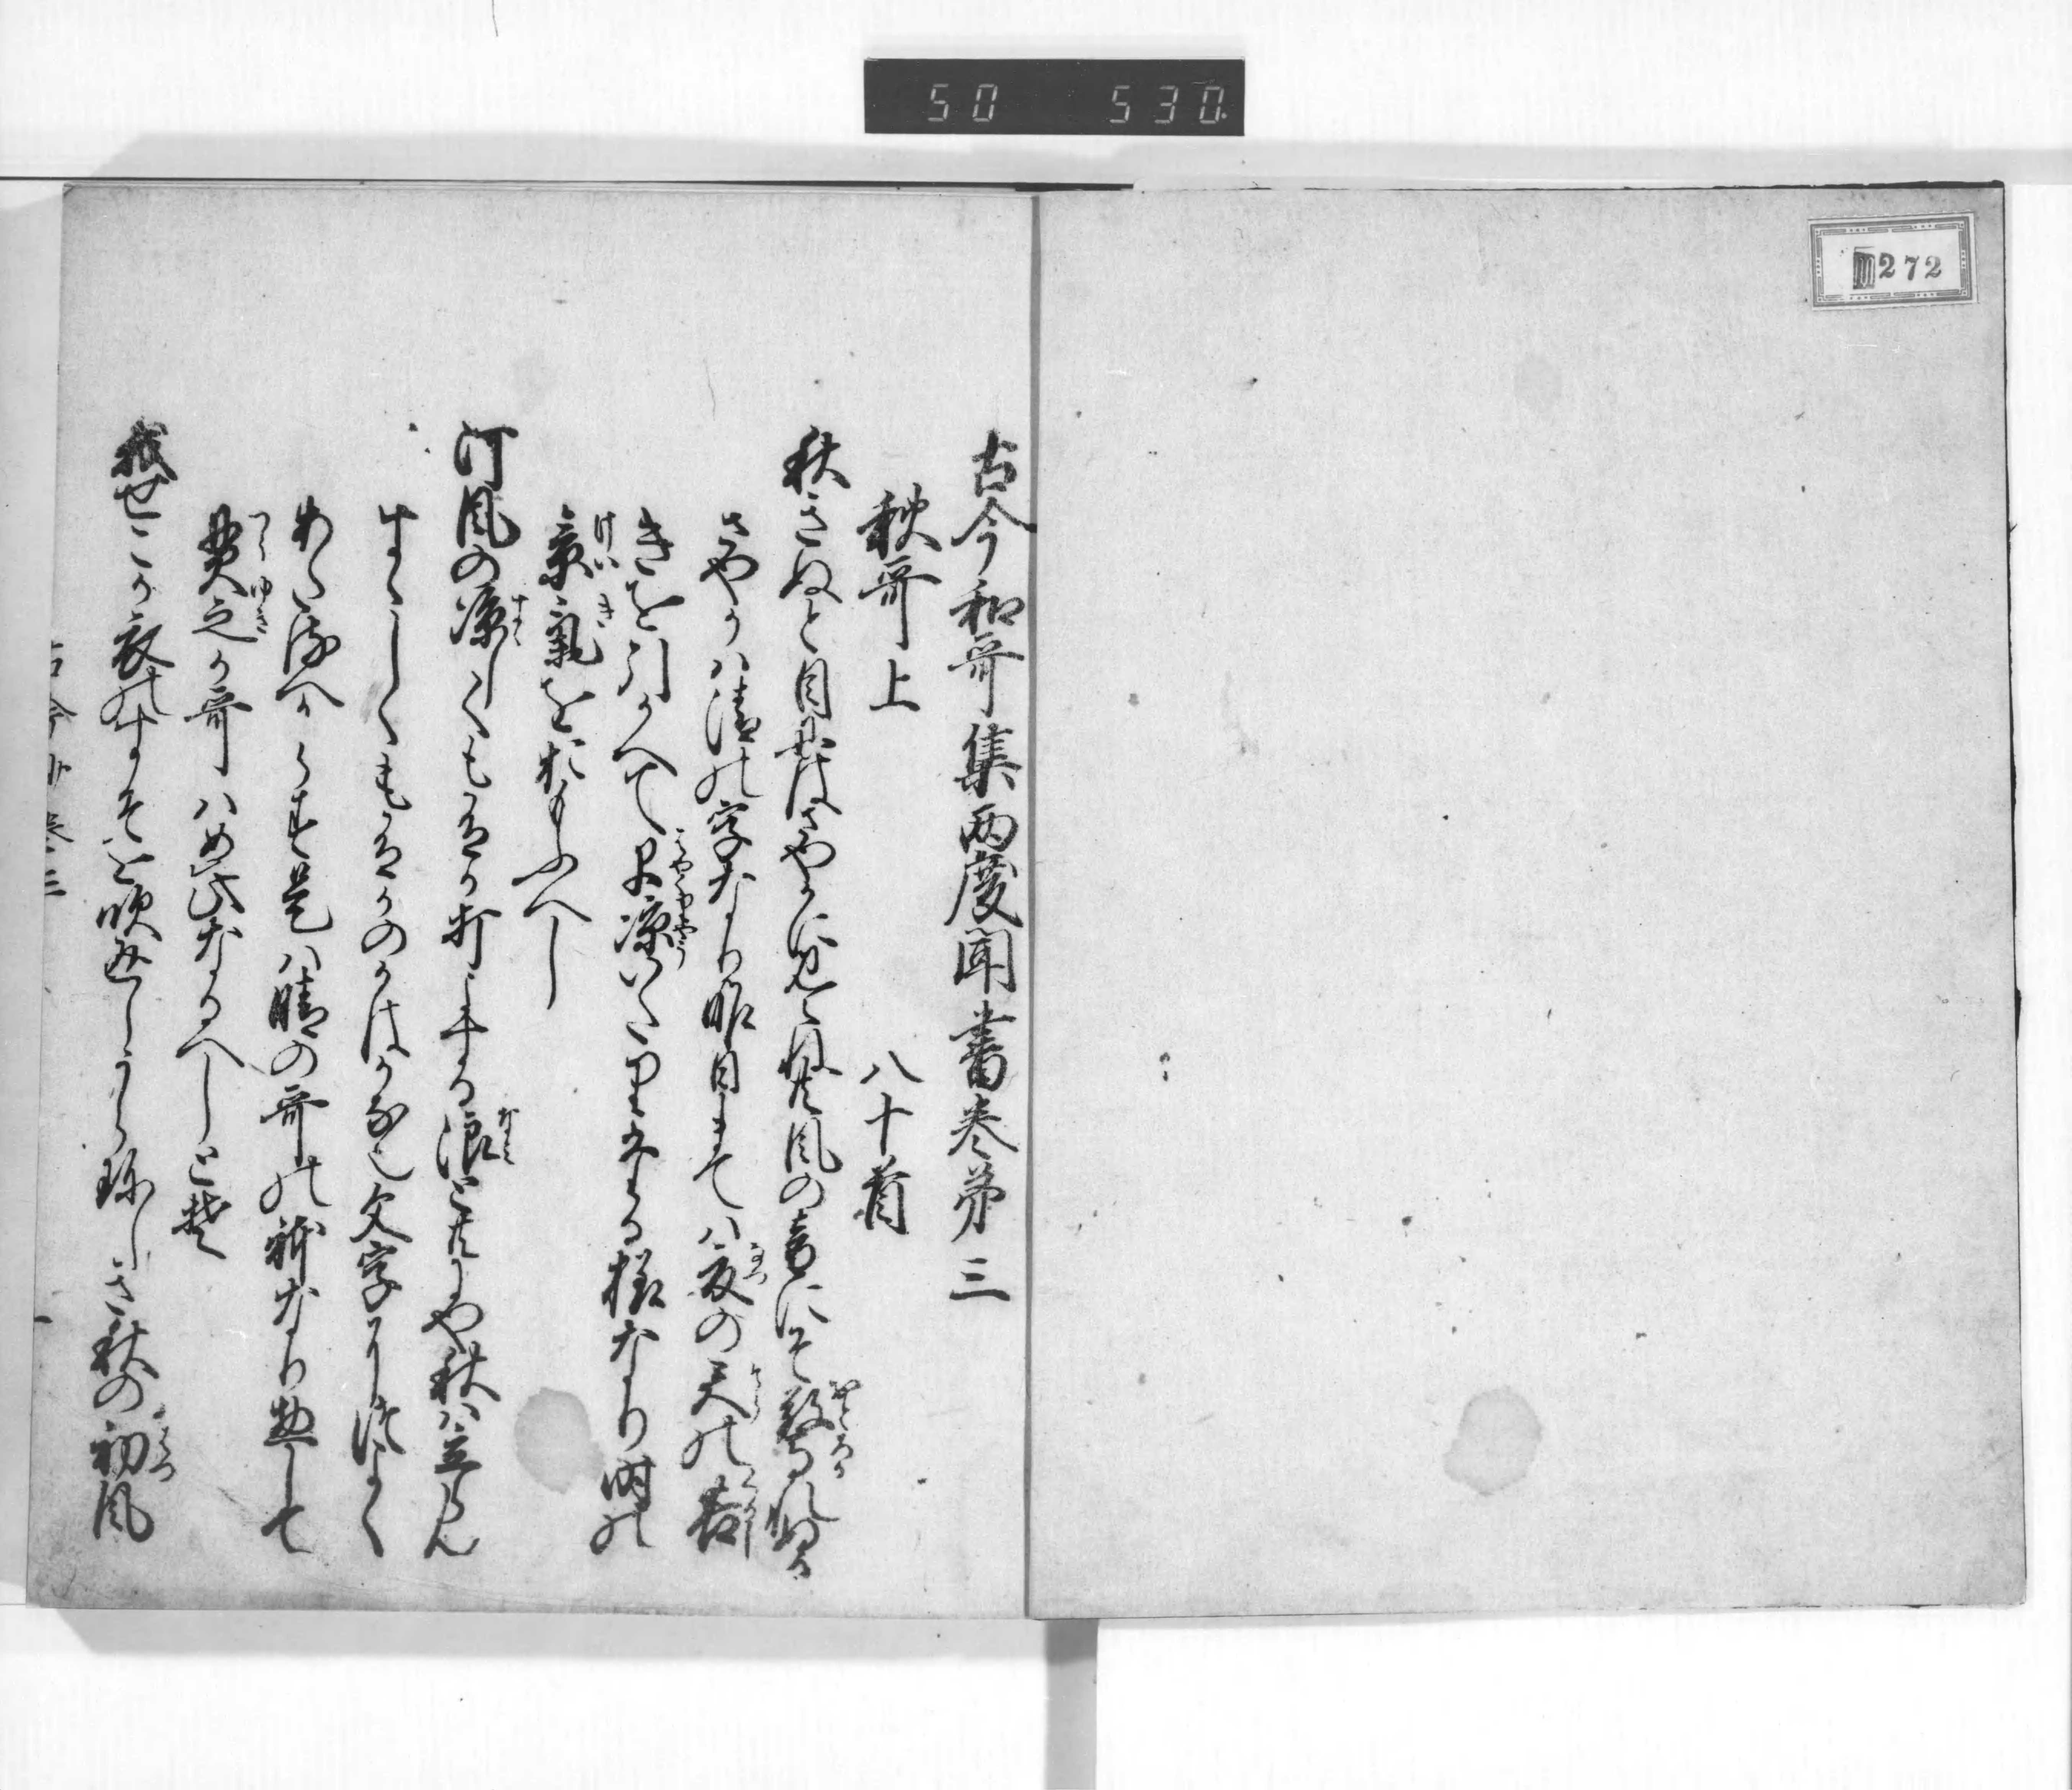 50 530
272
古今和哥集両度聞書巻第三
秋哥上 八十首
秋きぬと目にはさやかに見えねとも風の音にそ驚れぬる
さやかハ清の字なり昨日まてハ夏の天の
きを引かへて早涼いたりきたる様なり時の
景氣をおもふへし
河風の涼しくも有か打よする浪とともにや秋ハ立らん
すゝしくも有かのかはかな也文字につよく
あたるへからす是ハ晴の哥の躰なり惣して
貫之か哥ハめ此なるへしと楚
我せこか衣のすそを吹返しうら珎しき秋の初風
古今抄巻三
一